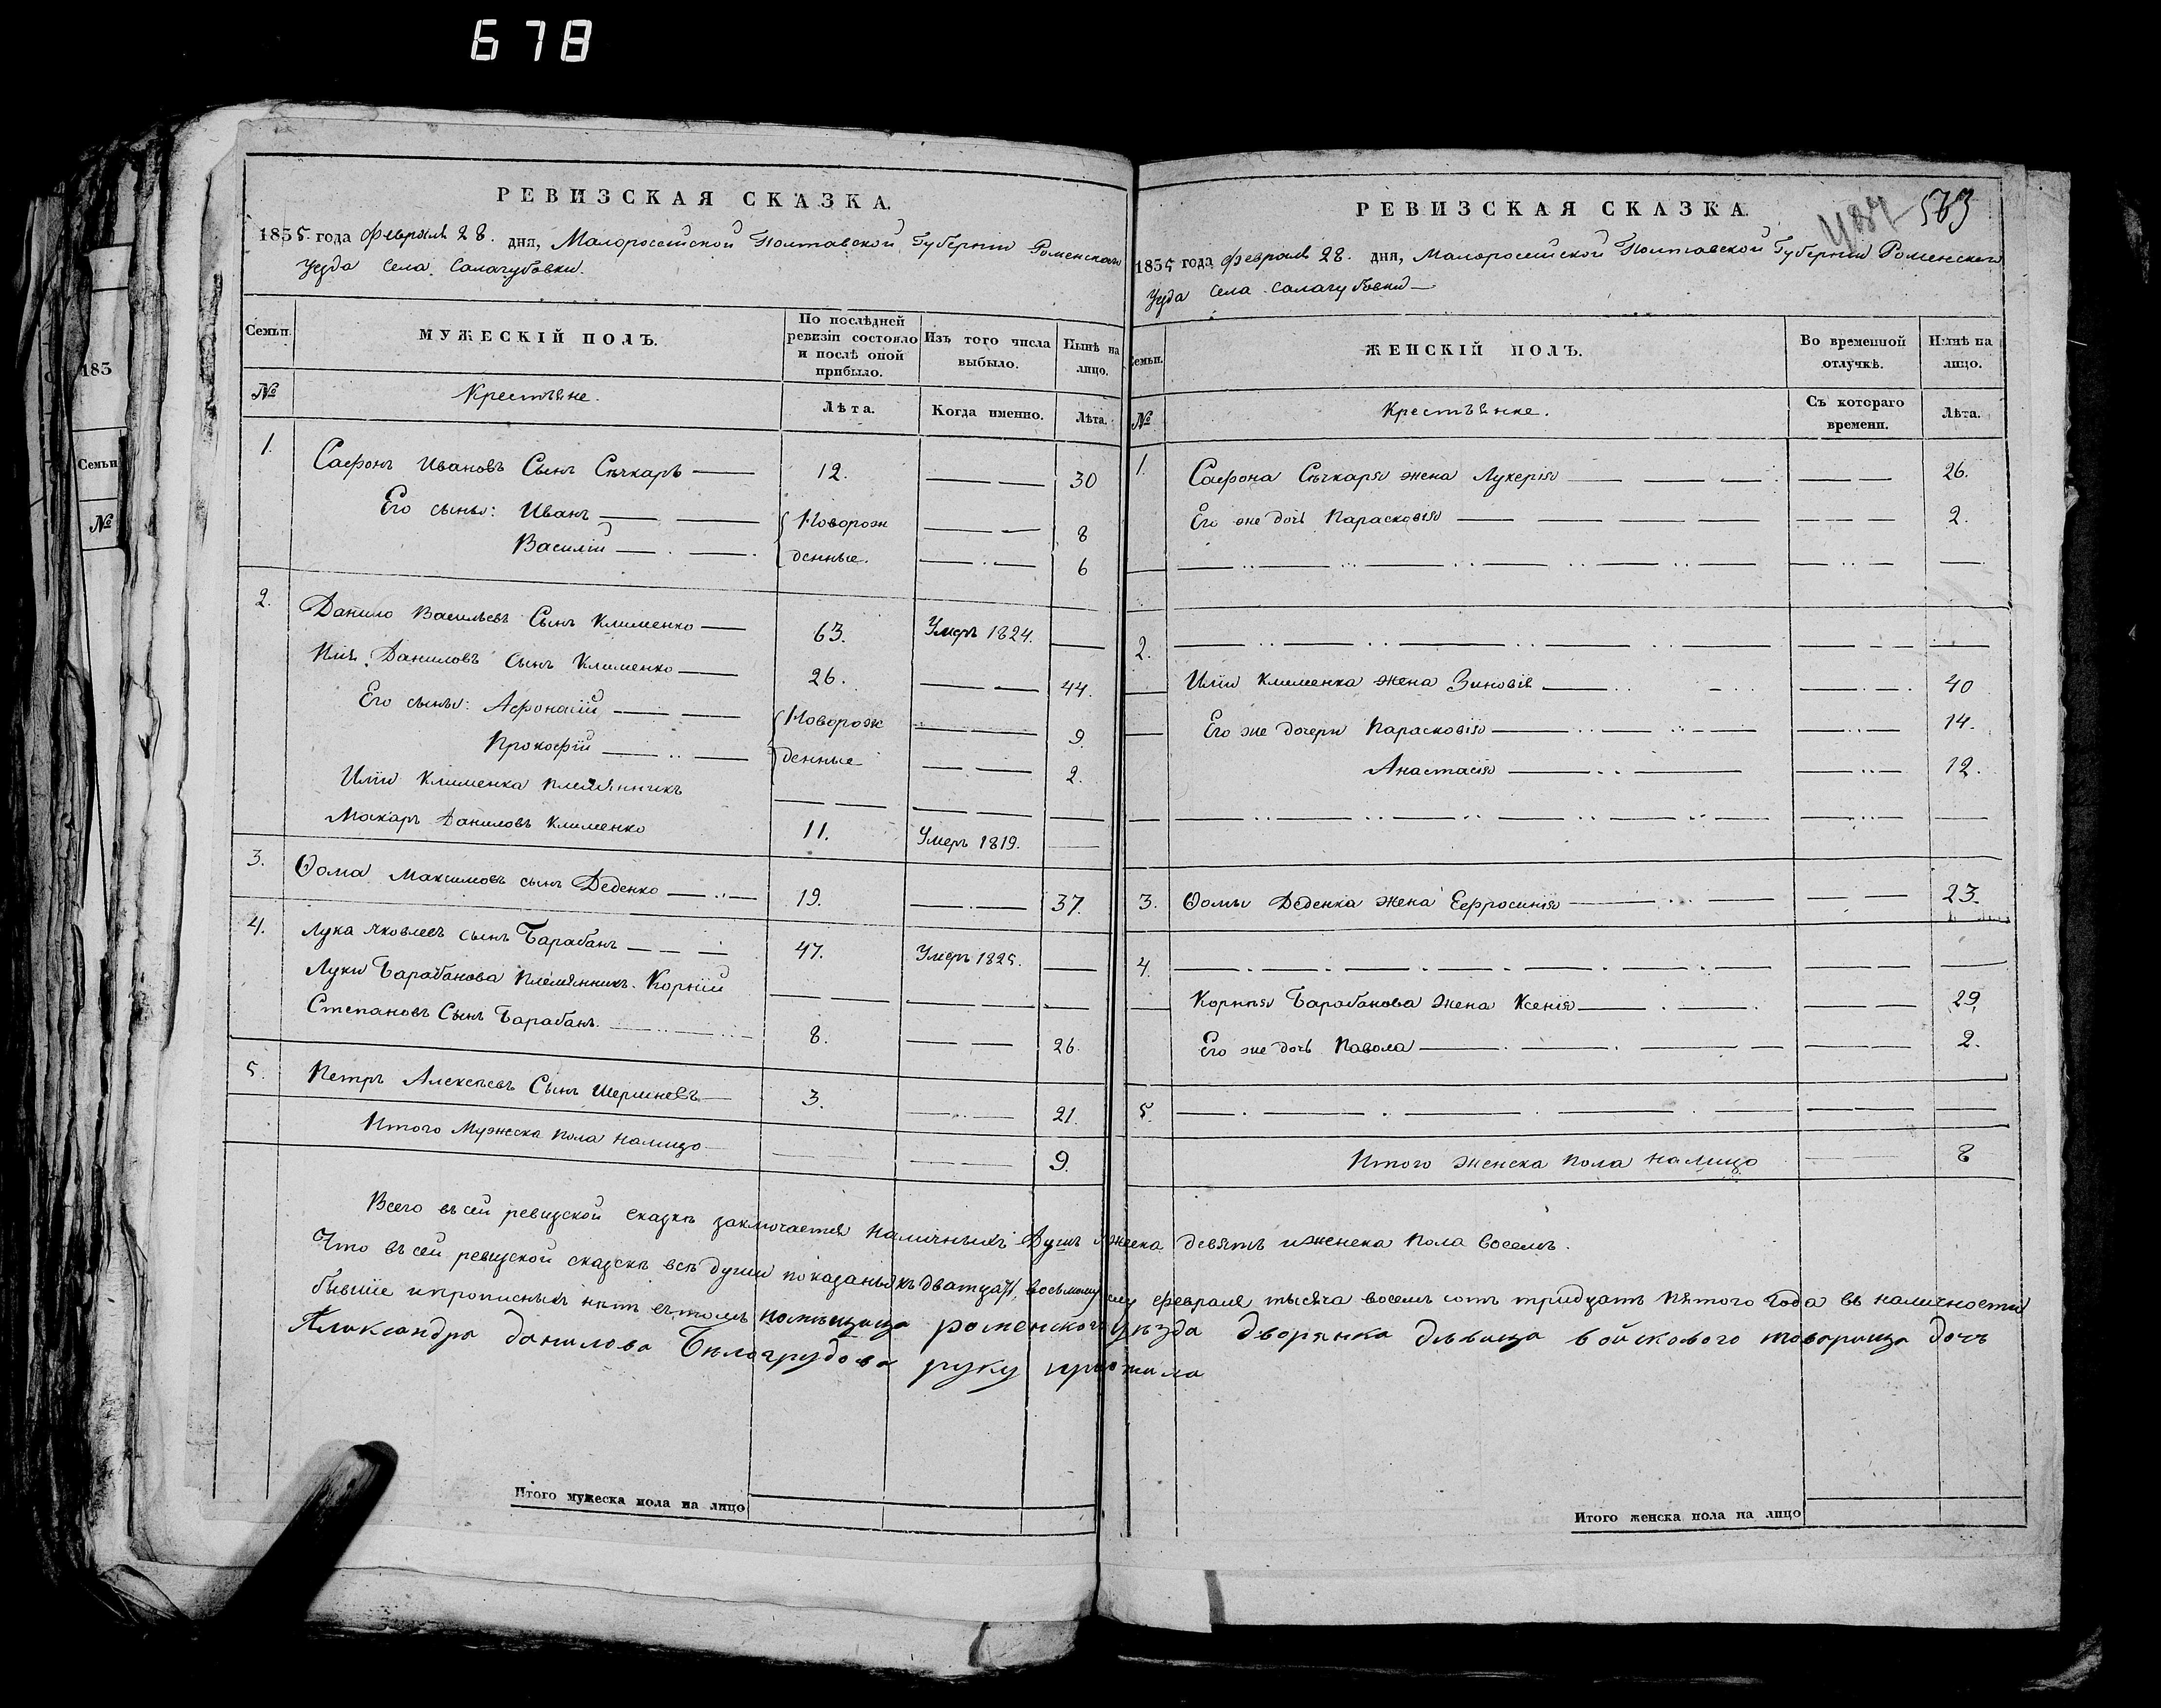 678
РЕВИЗСКАЯ СКАЗКА.
1835 года Февраля 28. дня, Малороссійской Полтавской Губерніи Роменскаго
Уезда Села Салагубовки.
Семьи. МУЖЕСКІЙ ПОЛЪ. По послѣдней ревизіи состояло и послѣ оной прибыло. Изъ того числа выбыло. Нынѣ на лицо.
№ Крестьяне. Лѣта. Когда именно. Лѣта.
1. Сафонъ Ивановъ Сынъ Сѣчкарь 12. 30
Его сыны: Иванъ Новорож 8
Василій денные. 6
2. Данило Васильевъ Сынъ Клименко 63. Умеръ 1824.
Илія Даниловъ Сынъ Клименко 26. 44.
Его сыны: Афонасій Новорож 9.
Прокофій денные 2.
Иліи Клименка племянникъ
Макаръ Даниловъ Клименко 11. Умеръ 1819.
3. Ѳома Максимовъ сынъ Деденко 19. 37.
4. Лука Яковлевъ сынъ Барабанъ 47. Умеръ 1825.
Луки Барабанова Племянникъ Корній
Степановъ Сынъ Барабанъ. 8. 26.
5. Петръ Алексѣевъ Сынъ 3. 21.
Итого Мужеска пола налицо 9.
РЕВИЗСКАЯ СКАЗКА. 563
1835 года Февраля 28. дня, Малороссійской Полтавской Губерніи Роменскаго
Уезда Села Салагубовки
Семьи. ЖЕНСКІЙ ПОЛЪ. Во временной отлучкѣ. Нынѣ на лицо.
№ Крестьянке. Съ котораго времени. Лѣта.
1. Сафона Сѣчкаря жена Лукерія 26.
Его же дочь Парасковія 2.
2.
Иліи Клименка жена Зиновія 40
Его же дочери Парасковія 14.
Анастасія 12.
3. Ѳомы Деденка жена Ефросинія 23.
4.
Корнія Барабанова жена Ксенія 29.
Его же дочь Павола 2.
5.
Итого женска пола налицо 8
Всего въ сей ревизской сказкѣ заключается Наличныхъ Душъ мужеска девять и женска пола восемь.
Что въ сей ревизской сказкѣ всѣ души показаны къ дватцать восьмому февраля тысяча восемь сотъ тридцать пятого года въ наличности
бывшіе и прописныхъ нѣтъ въ томъ помѣщица роменского уѣзда дворянка дѣвица войскового товарища дочь
Александра данилова Бѣлогрудова руку приложила
Итого мужеска пола на лицо
Итого женска пола на лицо
185
Семьи
№